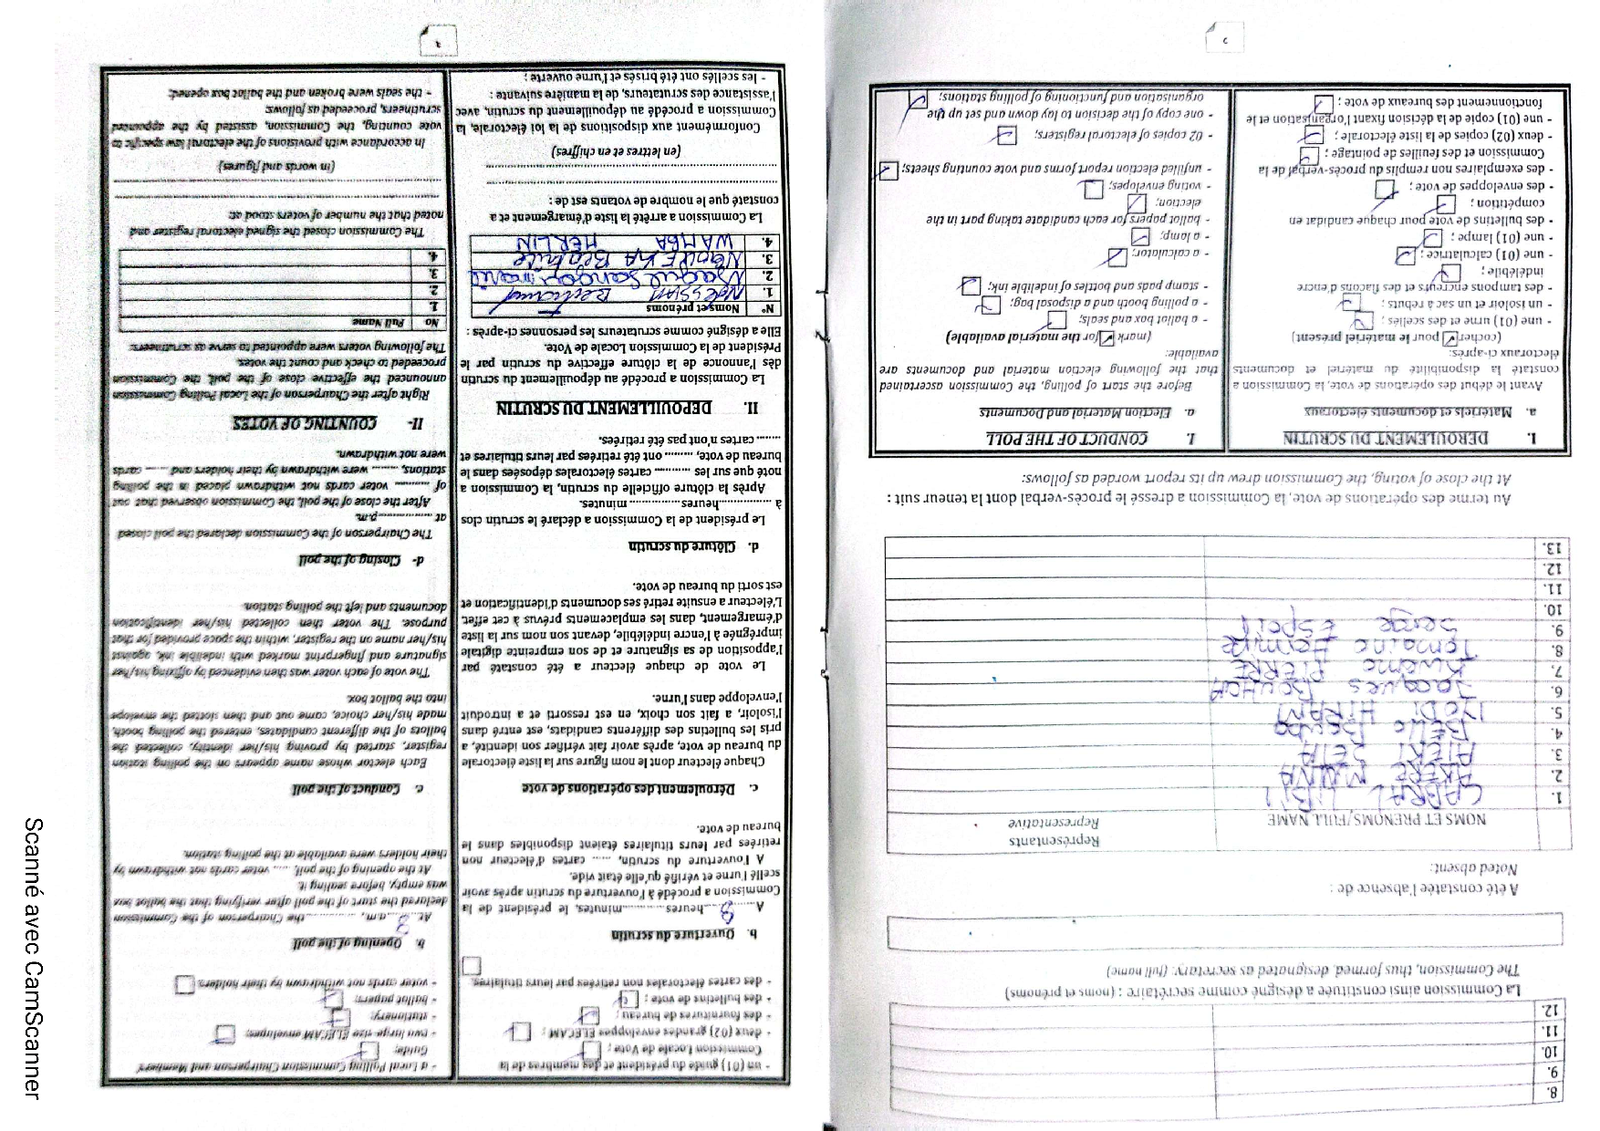 8.
9.
10.
11.
12.
La Commission ainsi constituée a désigné comme secrétaire : (noms et prénoms)
The Commission, thus formed, designated as secretary: (full name)
A été constatée l'absence de :
Noted absent:
NOMS ET PRENOMS/FULL NAME
Représentants
Representative
1. CABRAL LIBII
2. AKERE MUNA
3.
4. BELLO Bouba
5. HIRAM
6. Jacques
7. PIERRE
8. Tomaino Hermine
9. Serge Espoir
10.
11.
12.
13.
Au terme des opérations de vote, la Commission a dressé le procès-verbal dont la teneur suit :
At the close of voting, the Commission drew up its report worded as follows:
I. DEROULEMENT DU SCRUTIN
a. Matériels et documents électoraux
Avant le début des opérations de vote, la Commission a
constaté la disponibilité du matériel et documents
électoraux ci-après:
(cocher ✓ pour le matériel présent)
- une (01) urne et des scellés ;
- un isoloir et un sac à rebuts ;
- des tampons encreurs et des flacons d'encre
indélébile ;
- une (01) calculatrice ;
- une (01) lampe ;
- des bulletins de vote pour chaque candidat en
compétition ;
- des enveloppes de vote ;
- des exemplaires non remplis du procès-verbal de la
Commission et des feuilles de pointage ;
- deux (02) copies de la liste électorale ;
- une (01) copie de la décision fixant l'organisation et le
fonctionnement des bureaux de vote ;
I. CONDUCT OF THE POLL
a. Election Material and Documents
Before the start of polling, the Commission ascertained
that the following election material and documents are
available:
(mark ✓ for the material available)
- a ballot box and seals;
- a polling booth and a disposal bag;
- stamp pads and bottles of indelible ink;
- a calculator;
- a lamp;
- ballot papers for each candidate taking part in the
election;
- voting envelopes;
- unfilled election report forms and vote counting sheets;
- 02 copies of electoral registers;
- one copy of the decision to lay down and set up the
organisation and functioning of polling stations;
- un (01) guide du président et des membres de la
Commission Locale de Vote ;
- deux (02) grandes enveloppes ELECAM ;
- des fournitures de bureau ;
- des bulletins de vote ;
- des cartes électorales non retirées par leurs titulaires.
b. Ouverture du scrutin
A 8 heures ........ minutes, le président de la
Commission a procédé à l'ouverture du scrutin après avoir
scellé l'urne et vérifié qu'elle était vide.
A l'ouverture du scrutin, ..... cartes d'électeur non
retirées par leurs titulaires étaient disponibles dans le
bureau de vote.
c. Déroulement des opérations de vote
Chaque électeur dont le nom figure sur la liste électorale
du bureau de vote, après avoir fait vérifier son identité, a
pris les bulletins des différents candidats, est entré dans
l'isoloir, a fait son choix, en est ressorti et a introduit
l'enveloppe dans l'urne.
Le vote de chaque électeur a été constaté par
l'apposition de sa signature et de son empreinte digitale
imprégnée à l'encre indélébile, devant son nom sur la liste
d'émargement, dans les emplacements prévus à cet effet.
L'électeur a ensuite retiré ses documents d'identification et
est sorti du bureau de vote.
d. Clôture du scrutin
Le président de la Commission a déclaré le scrutin clos
à ............ heures ............ minutes.
Après la clôture officielle du scrutin, la Commission a
noté que sur les ......... cartes électorales déposées dans le
bureau de vote, ........ ont été retirées par leurs titulaires et
....... cartes n'ont pas été retirées.
II. DEPOUILLEMENT DU SCRUTIN
La Commission a procédé au dépouillement du scrutin
dès l'annonce de la clôture effective du scrutin par le
Président de la Commission Locale de Vote.
Elle a désigné comme scrutateurs les personnes ci-après :
N° Noms et prénoms
1.
2.
3.
4. WAMBA MERLIN
La Commission a arrêté la liste d'émargement et a
constaté que le nombre de votants est de :
(en lettres et en chiffres)
Conformément aux dispositions de la loi électorale, la
Commission a procédé au dépouillement du scrutin, avec
l'assistance des scrutateurs, de la manière suivante :
- les scellés ont été brisés et l'urne ouverte ;
- a Local Polling Commission Chairperson and Members'
Guide;
- two large-size ELECAM envelopes;
- stationery;
- ballot papers;
- voter cards not withdrawn by their holders;
b. Opening of the poll
At 8 a.m., ............ the Chairperson of the Commission
declared the start of the poll after verifying that the ballot box
was empty, before sealing it.
At the opening of the poll, ..... voter cards not withdrawn by
their holders were available at the polling station.
c. Conduct of the poll
Each elector whose name appears on the polling station
register, started by proving his/her identity, collected the
ballots of the different candidates, entered the polling booth,
made his/her choice, came out and then slotted the envelope
into the ballot box.
The vote of each voter was then evidenced by affixing his/her
signature and fingerprint marked with indelible ink, against
his/her name on the register, within the space provided for that
purpose. The voter then collected his/her identification
documents and left the polling station.
d- Closing of the poll
The Chairperson of the Commission declared the poll closed
at ................ p.m.
After the close of the poll, the Commission observed that out
of ......... voter cards not withdrawn placed in the polling
stations, ........ were withdrawn by their holders and ...... cards
were not withdrawn.
II- COUNTING OF VOTES
Right after the Chairperson of the Local Polling Commission
announced the effective close of the poll, the Commission
proceeded to check and count the votes.
The following voters were appointed to serve as scrutineers:
No Full Name
1.
2.
3.
4.
The Commission closed the signed electoral register and
noted that the number of voters stood at:
(in words and figures)
In accordance with provisions of the electoral law specific to
vote counting, the Commission, assisted by the appointed
scrutineers, proceeded as follows:
- the seals were broken and the ballot box opened;
Scanné avec CamScanner